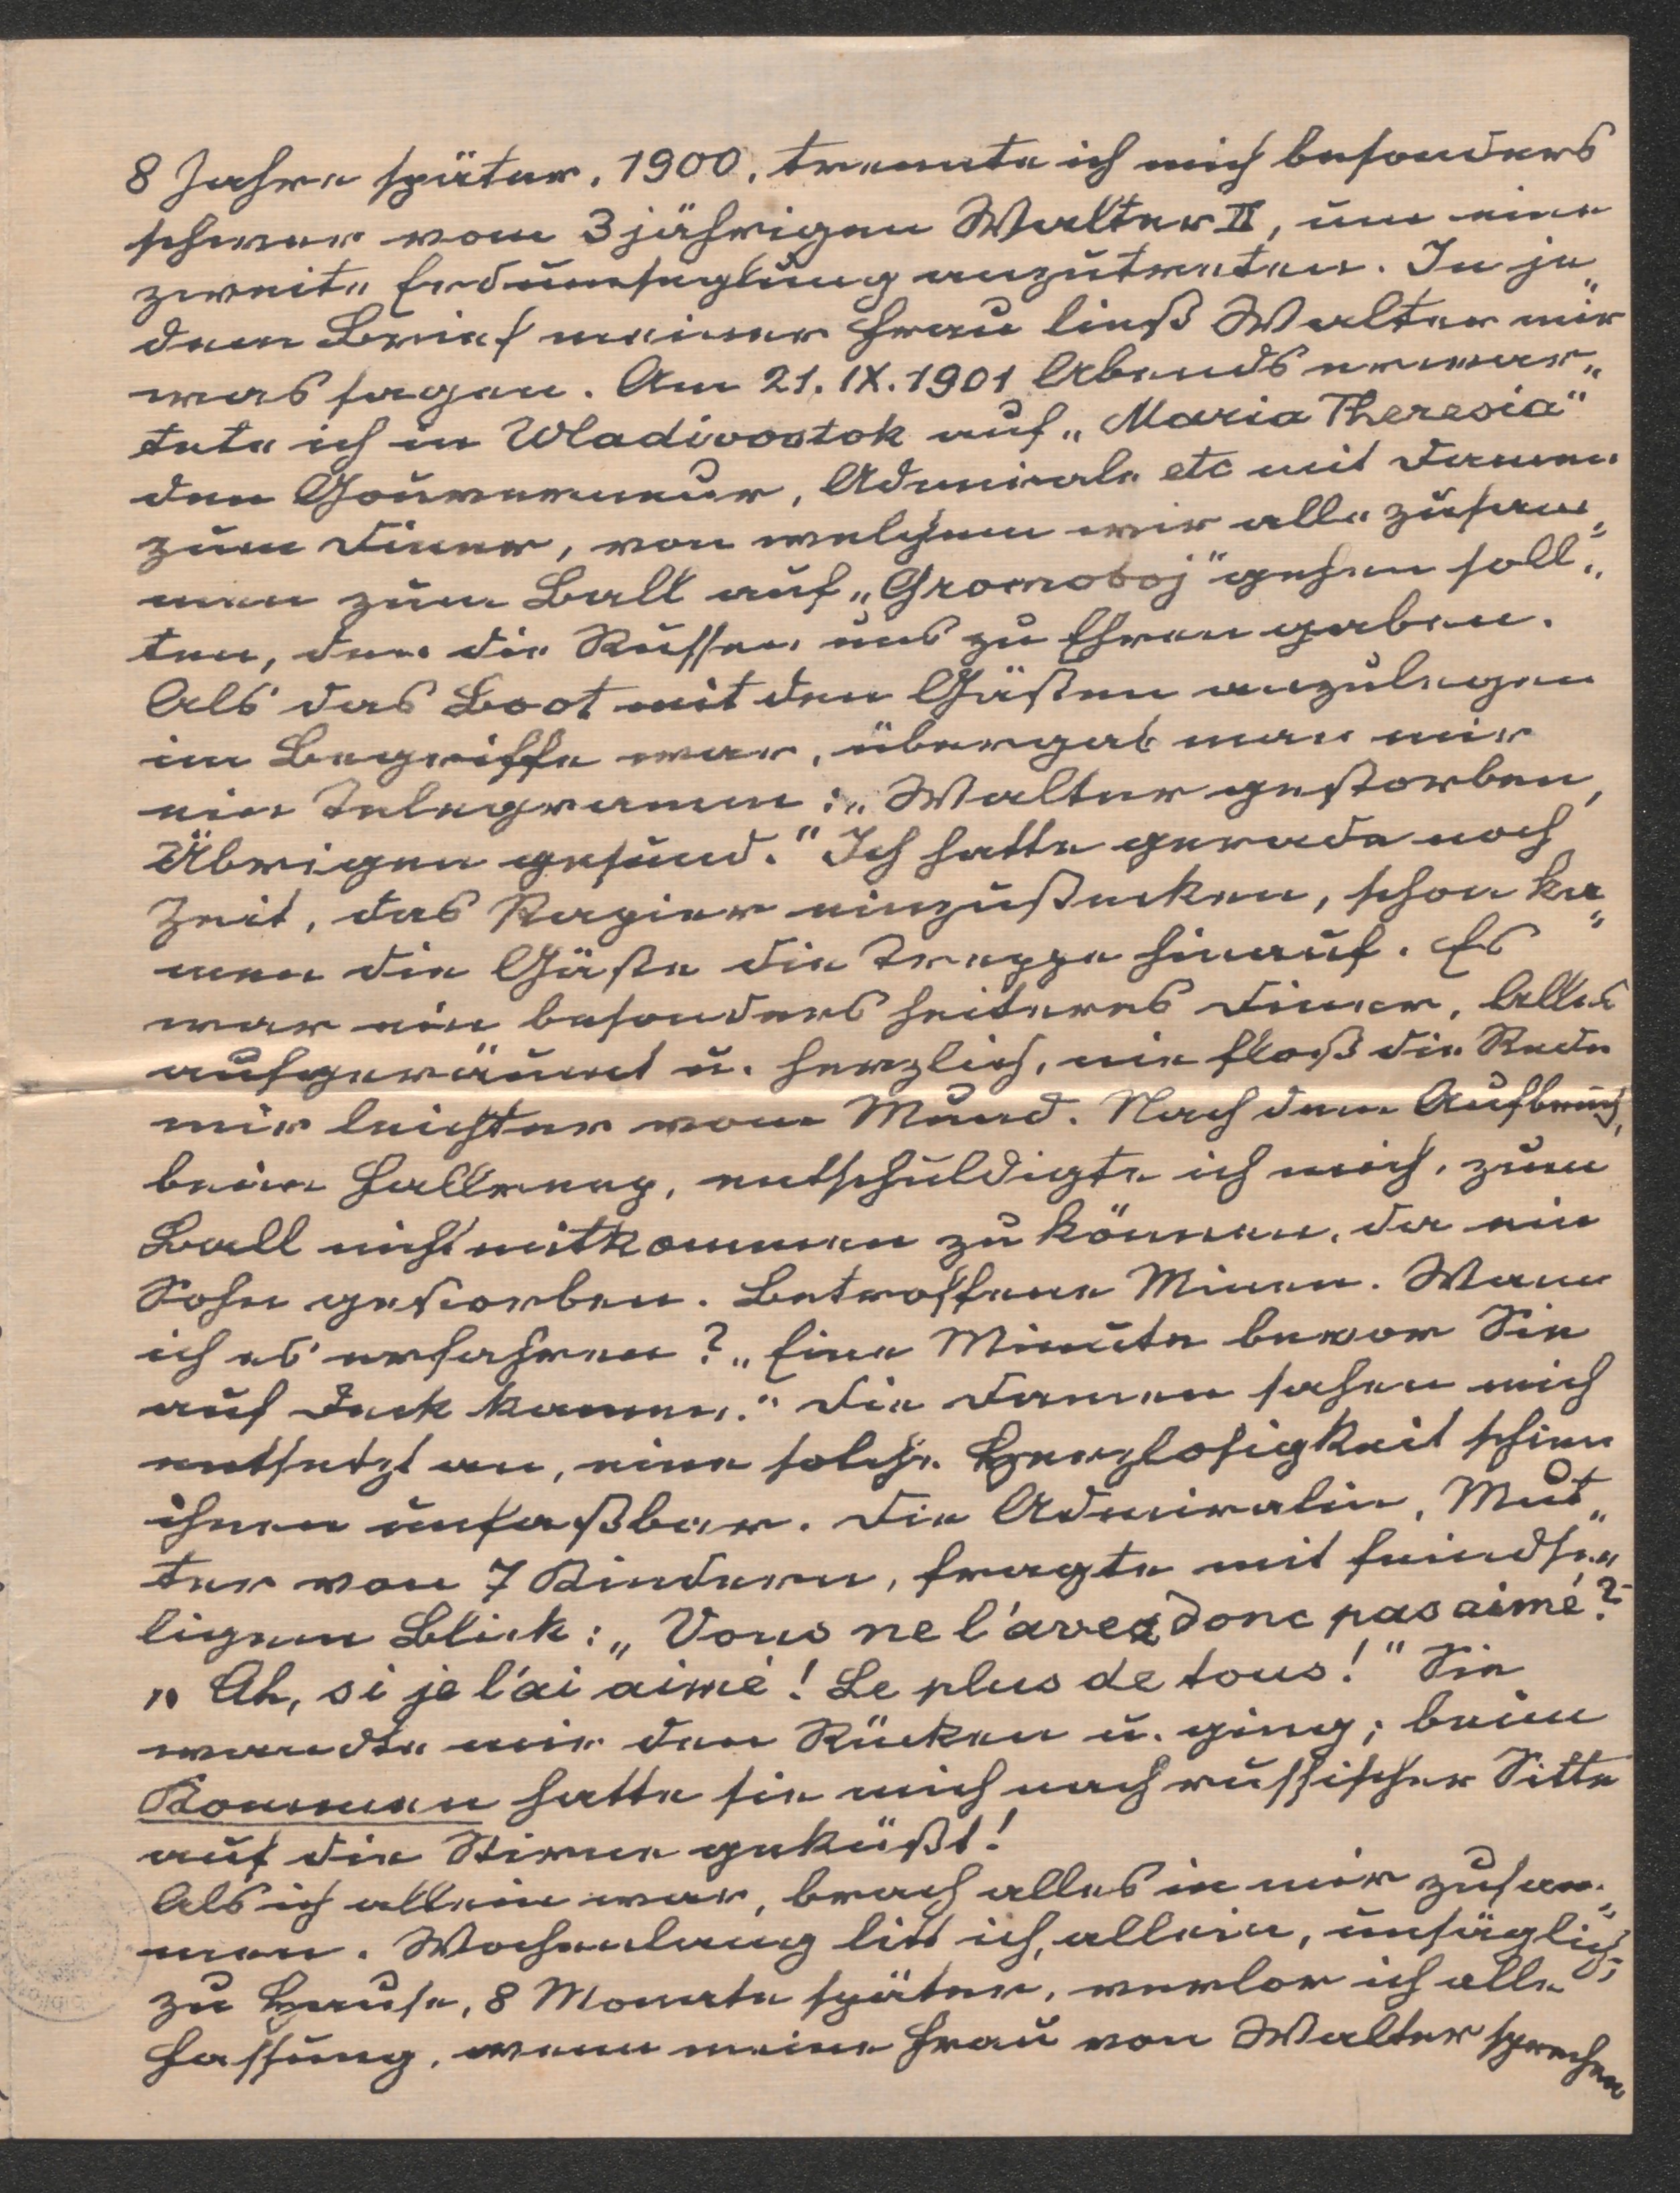 8 Jahre später, 1900, trennte ich mich besonders
schwer vom 3jährigen Walter II, um eine
zweite Erdumseglung anzutreten. In je„
dem Brief meiner Frau ließ Walter mir
was sagen. Am 21. IX. 1901 Abends erwar„
tete ich in Wladivostok auf „Maria Theresia"
den Gouverneur, Admirale etc mit Damen
zum Diner, von welchem wir alle zusam„
men zum Ball auf „Gromoboj" gehen soll„
ten, den die Russen uns zu Ehren gaben.
Als das Boot mit den Gästen anzulegen
im Begriffe war, übergab man mir
ein Telegramm: „Walter gestorben,
Übrigen gesund." Ich hatte gerade noch
Zeit, das Papier einzustecken, schon ka„
men die Gäste die Treppe hinauf. Es
war ein besonders heiteres Diner, Alles
aufgeräumt u. herzlich, nie floß die Rede
mir leichter vom Mund. Nach dem Aufbruch,
beim Fallreep, entschuldigte ich mich, zum
Ball nicht mitkommen zu können, da ein
Sohn gestorben. Betroffene Minen. Wann
ich es erfahren? „Eine Minute bevor Sie
auf Deck kamen." Die Damen sahen mich
entsetzt an, eine solche Herzlosigkeit schien
ihnen unfaßbar. Die Admiralin, Mut„
ter von 7 Kindern, fragte mit feindse„
ligem Blick: „Vous ne l'avez donc pas aimé?"
„Ah, si je l'ai aimé! Le plus de tous!" Sie
wandte mir den Rücken u. ging; beim
Kommen hatte sie mich nach russischer Sitte
auf die Stirne geküßt!
Als ich allein war, brach alles in mir zusam„
men. Wochenlang litt ich, allein, unsäglich;
zu Hause, 8 Monate später, verlor ich alle
Fassung, wenn meine Frau von Walter sprechen